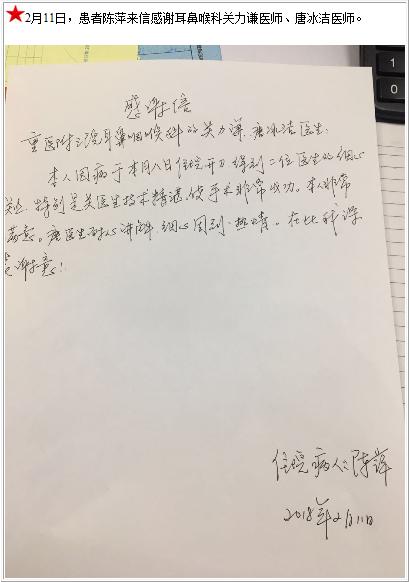 ★2月11日，患者陈萍来信感谢耳鼻喉科关力谦医师、唐冰洁医师。
1
0
感谢信
重医附三院耳鼻咽喉科的关力谦、唐冰洁医生：
本人因病于本月八日住院开刀得到二位医生的细心
关照。特别是关医生技术精湛，使手术非常成功。本人非常
满意。唐医生耐心讲解，细心周到，热情。在此科深
谢意！
住院病人：陈萍
2018年2月11日